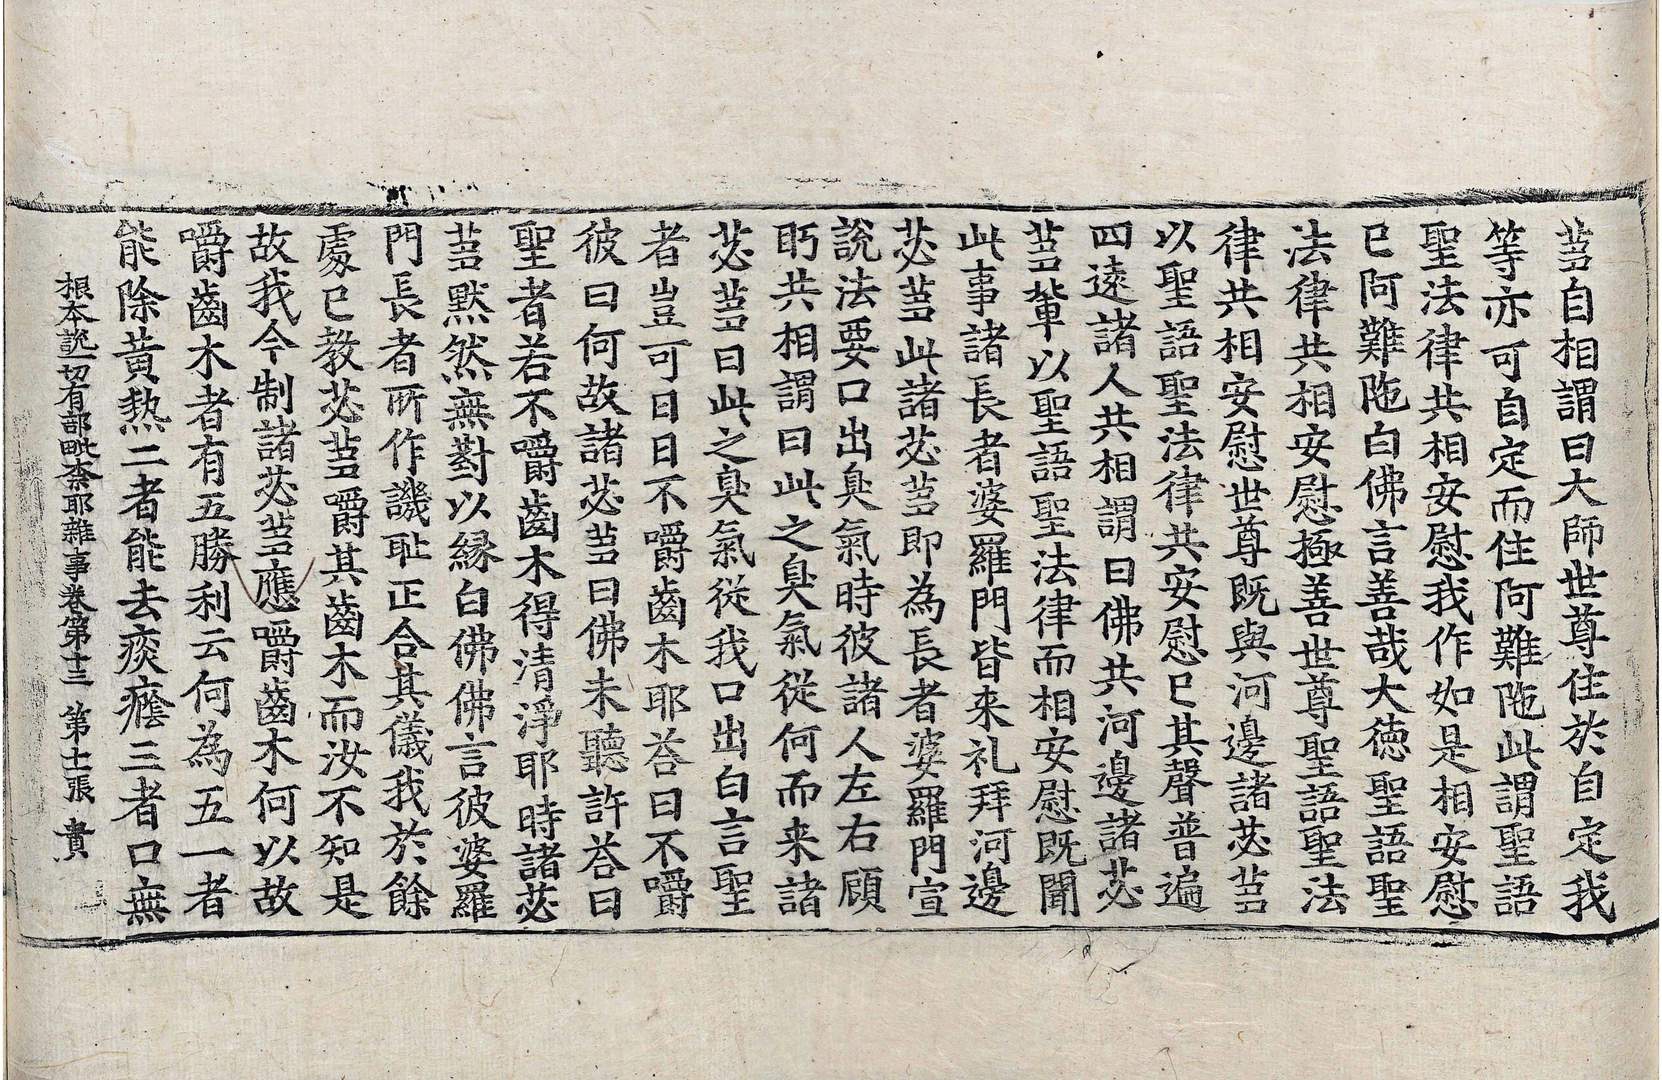 苾自相謂曰大師世尊住於自定我
等亦可自定而住阿難陁此謂聖語
聖法律共相安慰我作如是相安慰
已阿難陁白佛言善哉大徳聖語聖
法律共相安慰極善世尊聖語聖法
律共相安慰世尊既與河邊諸苾芻
以聖語聖法律共安慰已其聲普遍
四遠諸人共相謂曰佛共河邊諸苾
芻輩以聖語聖法律而相安慰既聞
此事諸長者婆羅門皆来礼拜河邊
苾芻此諸苾芻即為長者婆羅門宣
說法要口出臭氣時彼諸人左右顧
眄共相謂曰此之臭氣從何而来諸
苾芻曰此之臭氣從我口出白言聖
者豈可日日不嚼齒木耶荅曰不嚼
彼曰何故諸苾芻曰佛未聽許荅曰
聖者若不嚼齒木得清淨耶時諸苾
芻默然無對以縁白佛佛言彼婆羅
門長者所作譏耻正合其儀我於餘
處已教苾芻嚼其齒木而汝不知是
故我今制諸苾芻應嚼齒木何以故
嚼齒木者有五勝利云何為五一者
能除黃熱二者能去痰癊三者口無
根本說一切有部毗柰耶雜事卷第十三　第十一張　貴